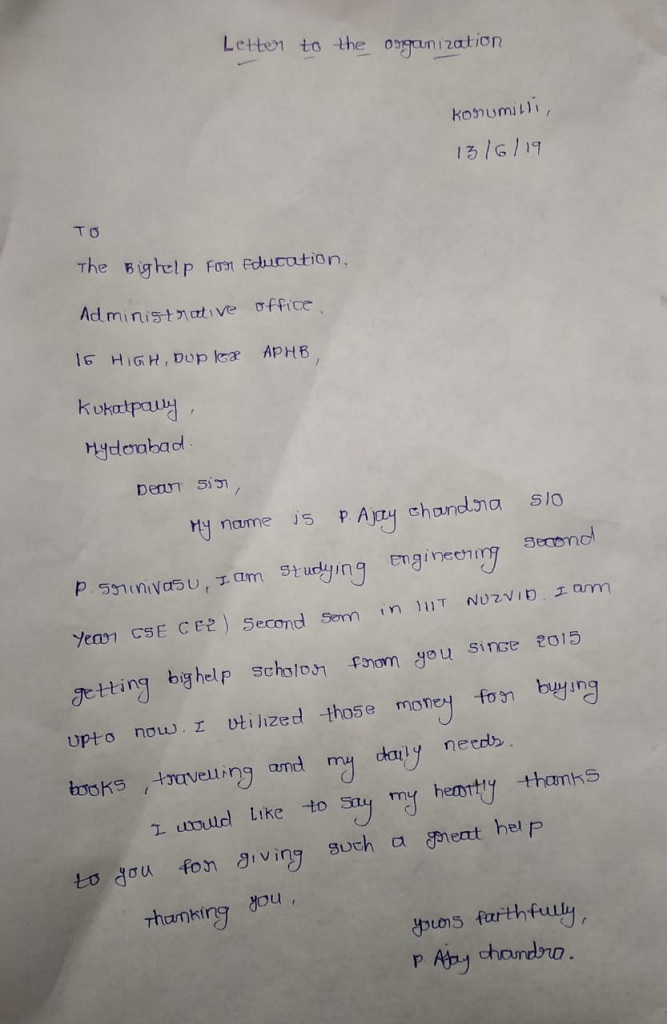 Letter to the organization
Korumilli,
13/6/19
To
The Bighelp For Education,
Administrative office,
15 HIGH, Duplex APHB,
Kukatpally,
Hyderabad.
Dear Sir,
My name is P. Ajay chandra S/O
P. Srinivasu, I am studying Engineering second
Year CSE (E2) Second sem in IIIT NUZVID. I am
getting bighelp scholor from you since 2015
upto now. I utilized those money for buying
books, travelling and my daily needs.
I would like to say my heartly thanks
to you for giving such a great help
Thanking you,
yours faithfully,
P Ajay chandra.